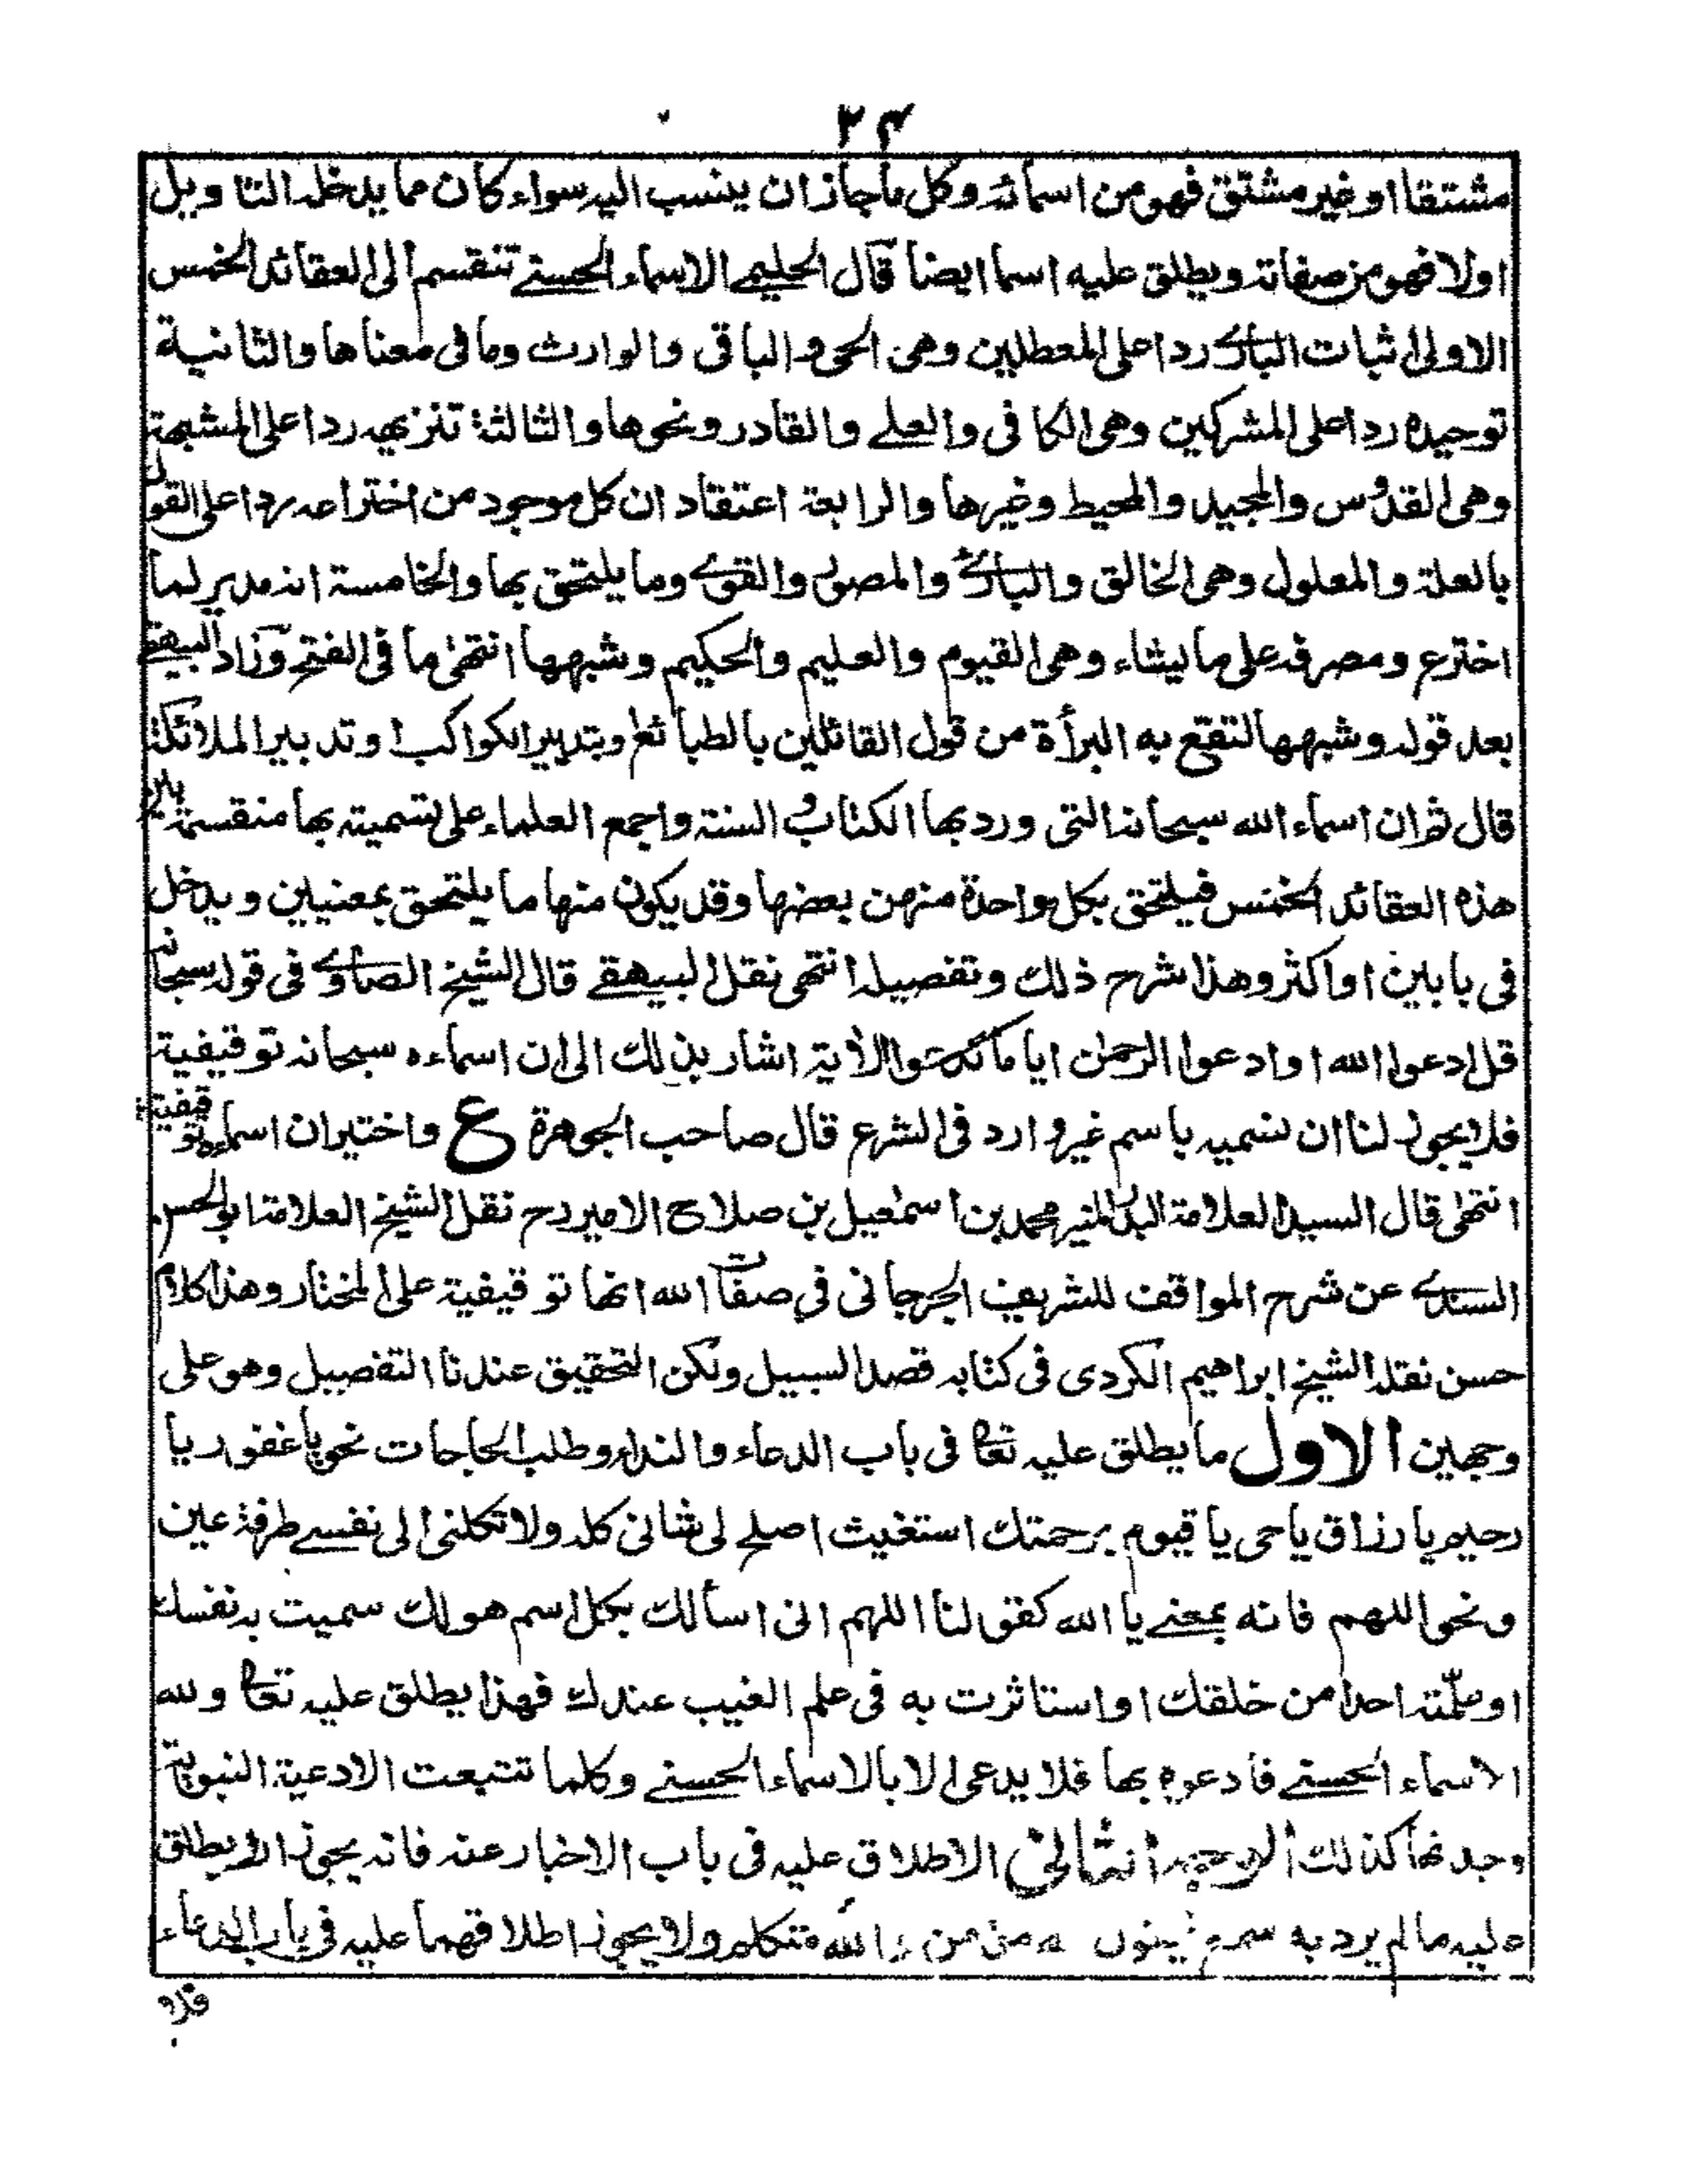 ٢٤
مشتقا او غير مشتق فهو من اسمائه وكل ما جاز ان ينسب اليه سواء كان مما يدخله التاويل
اولا فهو من صفاته ويطلق عليه اسما ايضا قال الحليمے الاسماء الحسنے تنقسم الى العقائد الخمس
الاولى اثبات البارے ردا على المعطلين وهى الحى والباقى والوارث وما فى معناها والثانية
توحيده ردا على المشركين وهى الكافى والعلے والقادر ونحوها والثالثة تنزيهه ردا على المشبهة
وهى القدوس والمجيد والمحيط وغيرها والرابعة اعتقاد ان كل موجود من اختراعه ردا على القول
بالعلة والمعلول وهى الخالق والبارئے والمصور والقوے وما يلتحق بها والخامسة انه مدبر لما
اخترع ومصرفه على ما يشاء وهى القيوم والعليم والحكيم وشبهها انتهى ما فى الفتح وزاد البيهقے
بعد قوله وشبهها لتقع به البرأة من قول القائلين بالطبائع وبتدبير الكواكب او تدبير الملائكة
قال ثم ان اسماء الله سبحانه التى ورد بها الكتاب والسنة واجمع العلماء على تسميته بها منقسمة بين
هذه العقائد الخمس فيلتحق بكل واحدة منهن بعضها وقد يكون منها ما يلتحق بمعنيين ويدخل
فى بابين او اكثر وهذا شرح ذلك وتفصيله انتهى نقل البيهقے قال الشيخ الصاوے فى قوله سبحانه
قل ادعوا الله او ادعوا الرحمن اياما تدعوا الأية اشار بذلك الى ان اسماءه سبحانه توقيفية
فلا يجوز لنا ان نسميه باسم غير وارد فى الشرع قال صاحب الجوهرة ع واختير ان اسماءه توقيفية
انتهى قال السيد العلامة البدر المنير محمد بن اسمٰعيل بن صلاح الامير رح نقل الشيخ العلامة ابو الحسن
السندے عن شرح المواقف للشريف الجرجانى في صفات الله انها توقيفية على المختار وهذا كلام
حسن نقله الشيخ ابراهيم الكردى فى كتابه قصد السبيل ولكن التحقيق عندنا التفصيل وهو على
وجهين الاول ما يطلق عليه تعالى فى باب الدعاء والنداء وطلب الحاجات نحو يا غفور يا
رحيم يا رزاق يا حى يا قيوم برحمتك استغيث اصلح لى شانى كله ولا تكلنى الى نفسے طرفة عين
ونحو اللهم فانه بمعنے يا الله كقولنا اللهم انى اسألك بكل اسم هو لك سميت به نفسك
او علّمته احدا من خلقك او استاثرت به فى علم الغيب عندك فهذا يطلق عليه تعالى ولله
الاسماء الحسنے فادعوه بها فلا يدعى الا بالاسماء الحسنے وكلما تتبعت الادعية النبوية
وجدتها كذلك الوجه الثانى الاطلاق عليه فى باب الاخبار عنه فانه يجوز ان يطلق
عليه ما لم يرد به الله متكلم ولا يجوز اطلاقهما عليه فى باب الدعاء
فلا